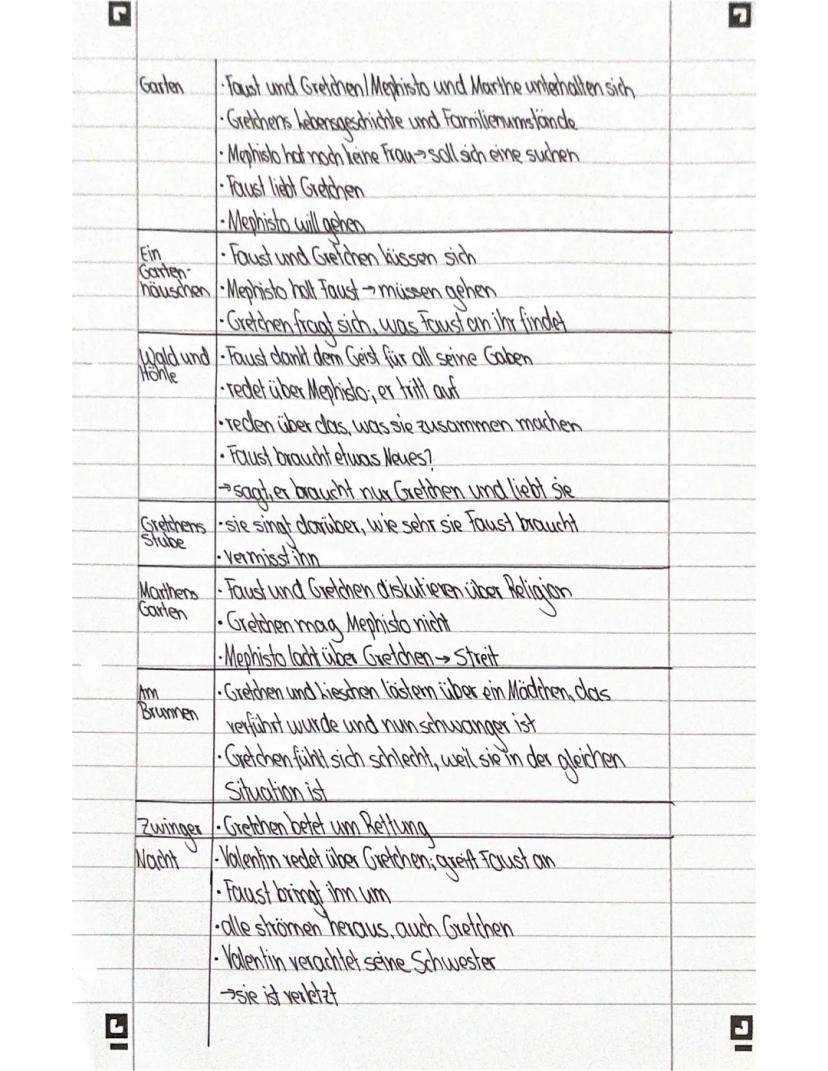 Garten · Faust und Gretchen/Mephisto und Marthe unterhalten sich
· Gretchens Lebensgeschichte und Familienumstände
· Mephisto hat noch keine Frau → soll sich eine suchen
· Faust liebt Gretchen
· Mephisto will gehen
Ein · Faust und Gretchen küssen sich
Garten-
häuschen · Mephisto holt Faust → müssen gehen
· Gretchen fragt sich, was Faust an ihr findet
Wald und · Faust dankt dem Geist für all seine Gaben
Höhle
· redet über Mephisto; er tritt auf
· reden über das, was sie zusammen machen
· Faust braucht etwas Neues?
→ sagt, er braucht nur Gretchen und liebt sie
Gretchens · sie singt darüber, wie sehr sie Faust braucht
Stube
· vermisst ihn
Marthens · Faust und Gretchen diskutieren über Religion
Garten
· Gretchen mag Mephisto nicht
· Mephisto lacht über Gretchen → Streit
Am · Gretchen und Lieschen lästern über ein Mädchen, das
Brunnen
verführt wurde und nun schwanger ist
· Gretchen fühlt sich schlecht, weil sie in der gleichen
Situation ist
Zwinger · Gretchen betet um Rettung
Nacht · Valentin redet über Gretchen; greift Faust an
· Faust bringt ihn um
· alle strömen heraus, auch Gretchen
· Valentin verachtet seine Schwester
→ sie ist verletzt